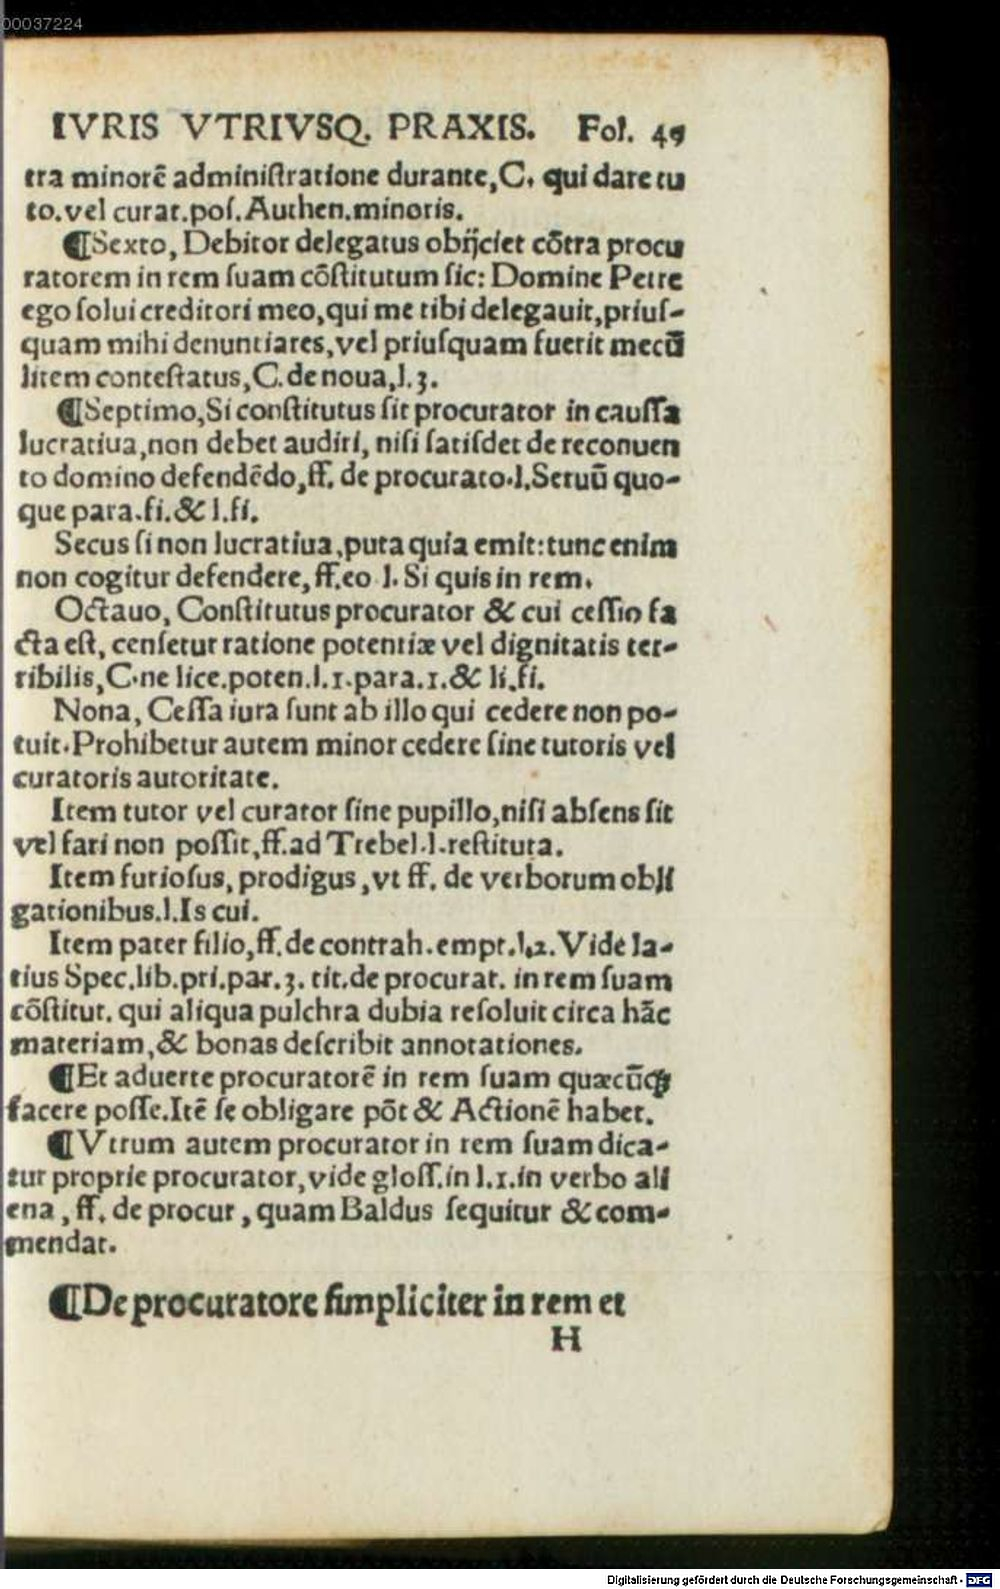 00037224
IVRIS VTRIVSQ. PRAXIS. Fol. 49
tra minorē adminiſtratione durante, C. qui dare tu
to. vel curat. poſ. Authen. minoris.
¶Sexto, Debitor delegatus obijciet cōtra procu
ratorem in rem ſuam cōſtitutum ſic: Domine Petre
ego ſolui creditori meo, qui me tibi delegauit, priuſ-
quam mihi denuntiares, vel priuſquam fuerit mecū
litem conteſtatus, C. de noua, l. 3.
¶Septimo, Si conſtitutus ſit procurator in cauſſa
lucratiua, non debet audiri, niſi ſatiſdet de reconuen
to domino defendēdo, ff. de procurato. l. Seruū quo-
que para. fi. & l. fi.
Secus ſi non lucratiua, puta quia emit: tunc enim
non cogitur defendere, ff. eo l. Si quis in rem.
Octauo, Conſtitutus procurator & cui ceſſio fa
cta eſt, cenſetur ratione potentiæ vel dignitatis ter-
ribilis, C. ne lice. poten. l. 1. para. 1. & li. fi.
Nona, Ceſſa iura ſunt ab illo qui cedere non po-
tuit. Prohibetur autem minor cedere ſine tutoris vel
curatoris autoritate.
Item tutor vel curator ſine pupillo, niſi abſens ſit
vel fari non poſſit, ff. ad Trebel. l. reſtituta.
Item furioſus, prodigus, vt ff. de verborum obli
gationibus. l. Is cui.
Item pater filio, ff. de contrah. empt. l. 2. Vide la-
tius Spec. lib. pri. par. 3. tit. de procurat. in rem ſuam
cōſtitut. qui aliqua pulchra dubia reſoluit circa hāc
materiam, & bonas deſcribit annotationes.
¶Et aduerte procuratorē in rem ſuam quæcūq;
facere poſſe. Itē ſe obligare pōt & Actionē habet.
¶Vtrum autem procurator in rem ſuam dica-
tur proprie procurator, vide gloſſ. in l. 1. in verbo ali
ena, ff. de procur, quam Baldus ſequitur & com-
mendat.
¶De procuratore ſimpliciter in rem et
H
Digitalisierung gefördert durch die Deutsche Forschungsgemeinschaft - DFG